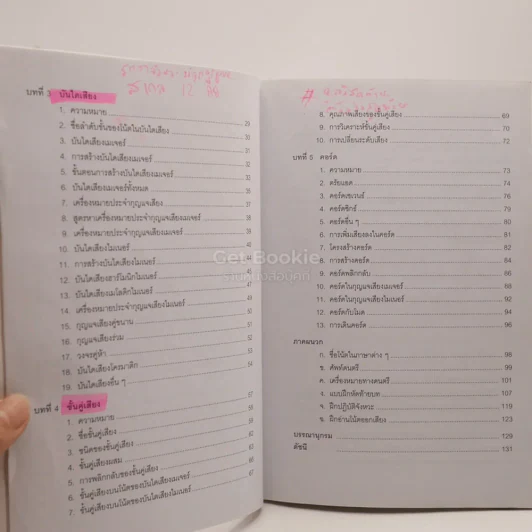 สเกล 12 คีย์
บทที่ 3 บันไดเสียง
1. ความหมาย 29
2. ชื่อลำดับชั้นของโน้ตในบันไดเสียง
3. บันไดเสียงเมเจอร์
4. การสร้างบันไดเสียงเมเจอร์
5. ขั้นตอนการสร้างบันไดเสียงเมเจอร์
6. บันไดเสียงเมเจอร์ทั้งหมด
7. เครื่องหมายประจำกุญแจเสียง
8. สูตรหาเครื่องหมายประจำกุญแจเสียงเมเจอร์
9. เครื่องหมายประจำกุญแจเสียงเมเจอร์
10. บันไดเสียงไมเนอร์
11. การสร้างบันไดเสียงไมเนอร์
12. บันไดเสียงฮาร์โมนิกไมเนอร์
13. บันไดเสียงเมโลดิกไมเนอร์
14. เครื่องหมายประจำกุญแจเสียงไมเนอร์
15. กุญแจเสียงคู่ขนาน
16. กุญแจเสียงร่วม
17. วงจรคู่ห้า
18. บันไดเสียงโครมาติก
19. บันไดเสียงอื่น ๆ
บทที่ 4 ขั้นคู่เสียง
1. ความหมาย 57
2. ชื่อขั้นคู่เสียง
3. ชนิดของขั้นคู่เสียง
4. ขั้นคู่เสียงผสม
5. การพลิกกลับของขั้นคู่เสียง
6. ขั้นคู่เสียงบนโน้ตของบันไดเสียงเมเจอร์
7. ขั้นคู่เสียงบนโน้ตของบันไดเสียงไมเนอร์
#
8. คุณภาพเสียงของขั้นคู่เสียง 69
9. การวิเคราะห์ขั้นคู่เสียง 70
10. การเปลี่ยนระดับเสียง 72
บทที่ 5 คอร์ด
1. ความหมาย 73
2. ตรัยแอด 74
3. คอร์ดเซเวนธ์ 76
4. คอร์ดซิกธ์ 79
5. คอร์ดอื่น ๆ 80
6. การเพิ่มเสียงลงในคอร์ด 82
7. โครงสร้างคอร์ด 82
8. การสร้างคอร์ด 84
9. คอร์ดพลิกกลับ 86
10. คอร์ดในกุญแจเสียงเมเจอร์ 88
11. คอร์ดในกุญแจเสียงไมเนอร์ 90
12. คอร์ดกับโมด 92
13. การเดินคอร์ด 94
ภาคผนวก
ก. ชื่อโน้ตในภาษาต่าง ๆ 97
ข. ศัพท์ดนตรี 98
ค. เครื่องหมายทางดนตรี 101
ง. แบบฝึกหัดท้ายบท 107
จ. ฝึกปฏิบัติจังหวะ 116
ฉ. ฝึกอ่านโน้ตออกเสียง 123
บรรณานุกรม 129
ดัชนี 131
Get Bookie
ร้านหนังสือบุ๊คกี้